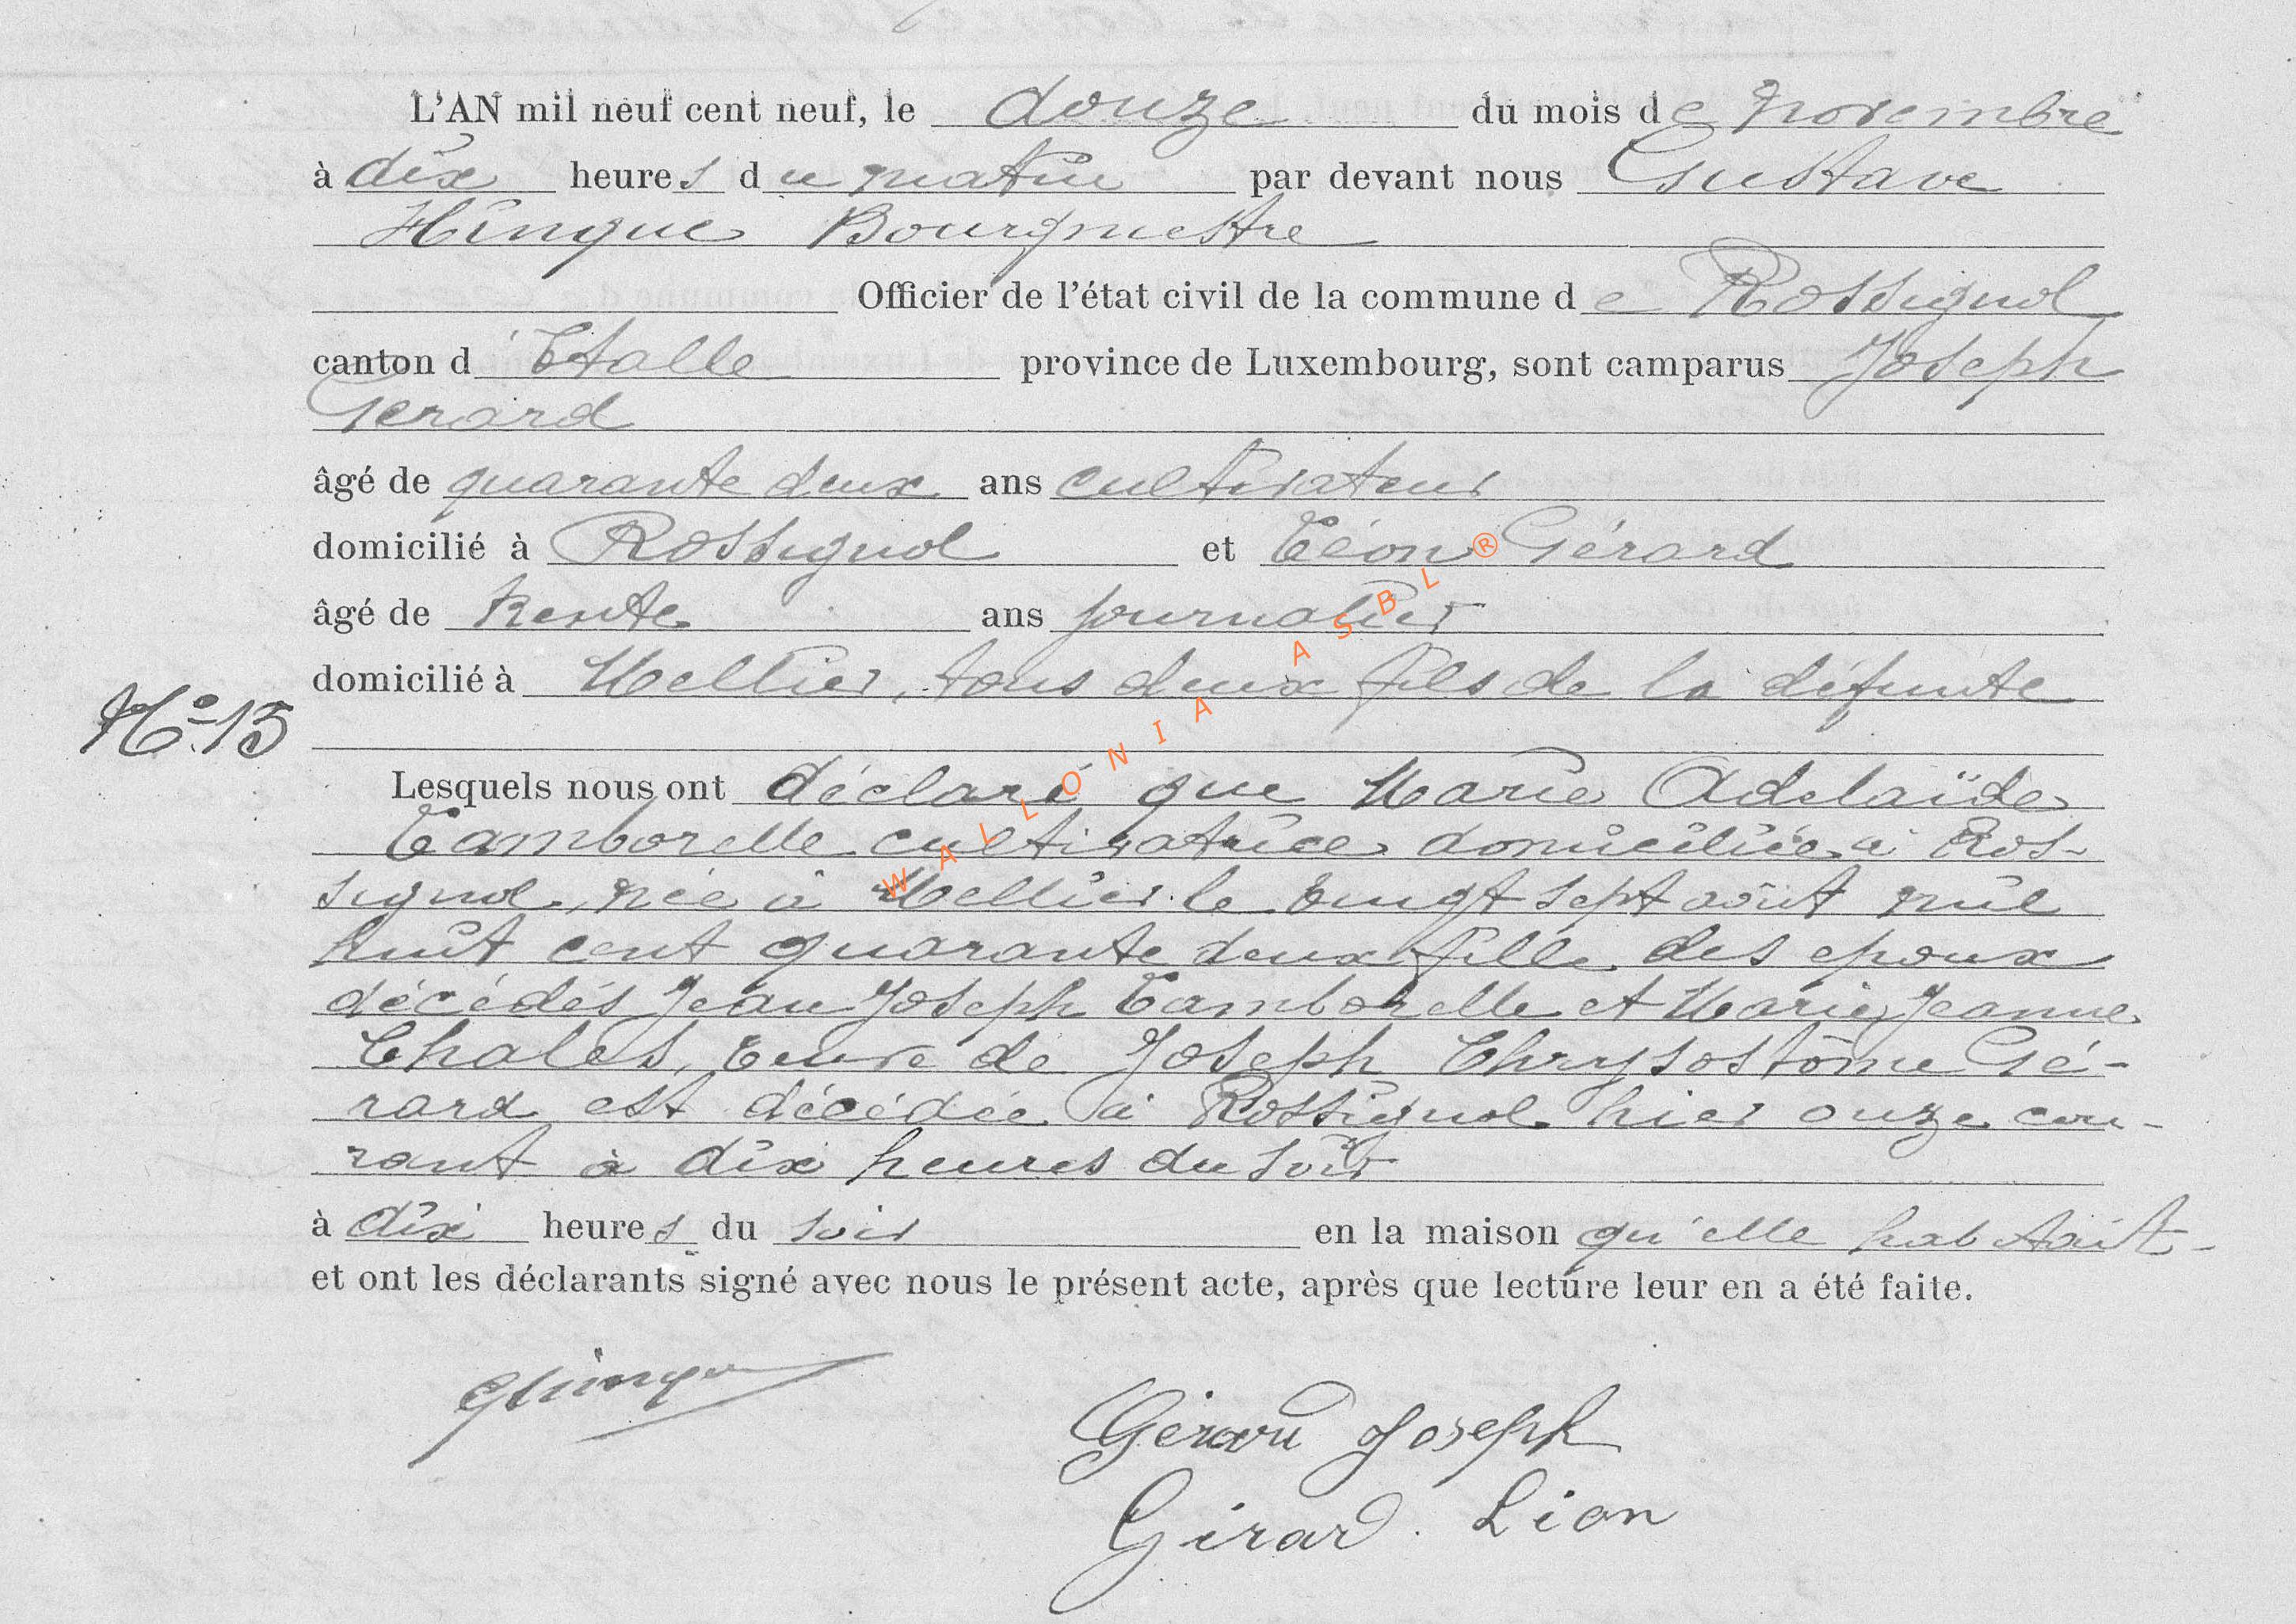 L'AN mil neuf cent neuf, le douze du mois de Novembre
à dix heures du matin par devant nous Gustave
Hinque Bourgmestre
Officier de l'état civil de la commune de Rossignol
canton d'Etalle province de Luxembourg, sont camparus Joseph
Gerard
âgé de quarante deux ans cultivateur
domicilié à Rossignol et Léon Gérard
âgé de trente ans journalier
domicilié à Mellier, tous deux fils de la défunte
No 15
Lesquels nous ont déclaré que Marie Adelaïde
Lamborelle cultivatrice domiciliée à Ros-
signol, née à Mellier le vingt sept août mil
huit cent quarante deux fille des epoux
décédés Jean Joseph Lamborelle et Marie Jeanne
Chales, veuve de Joseph Chrysostôme Gé-
rard est décédée à Rossignol hier onze cou-
rant à dix heures du soir
à dix heures du soir en la maison qu'elle habitait
et ont les déclarants signé avec nous le présent acte, après que lecture leur en a été faite.
GHinque
Gérard Joseph
Gérard Léon
WALLONIA ASBL ®